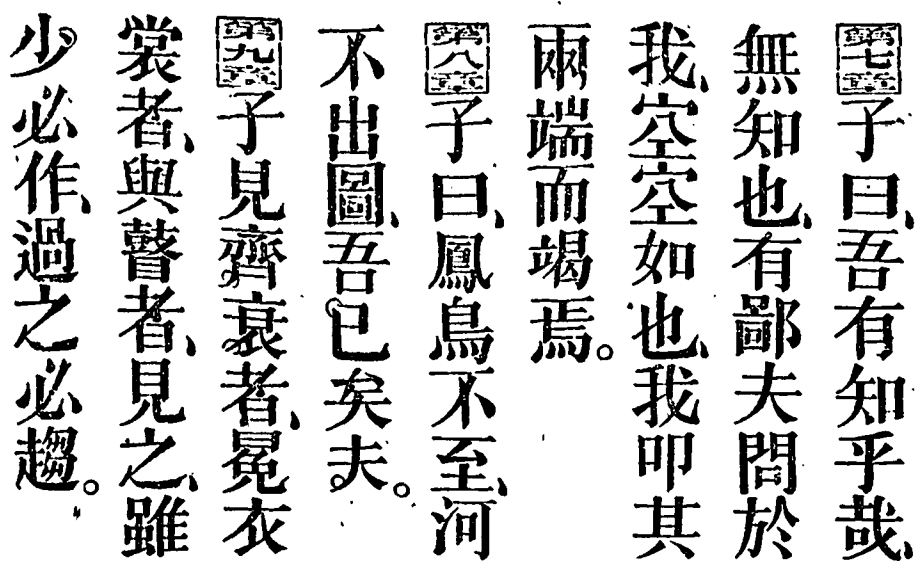 第七章子曰、吾有知乎哉、
無知也、有鄙夫問於
我、空空如也、我叩其
兩端而竭焉。
第八章子曰、鳳鳥不至、河
不出圖、吾已矣夫。
第九章子見齊衰者、冕衣
裳者、與瞽者、見之、雖
少必作、過之必趨。